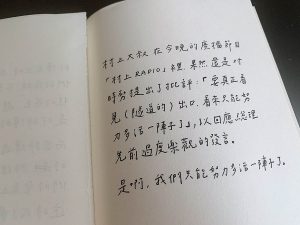 村上大叔在今晚的廣播節目
「村上RADIO」裡,果然還是對
時勢提出了批評,「要真正看
見(隧道的)出口,看來只能努
力多活一陣子了」,以回應總理
先前過度樂觀的發言。
是啊,我們只能努力多活一陣子了。